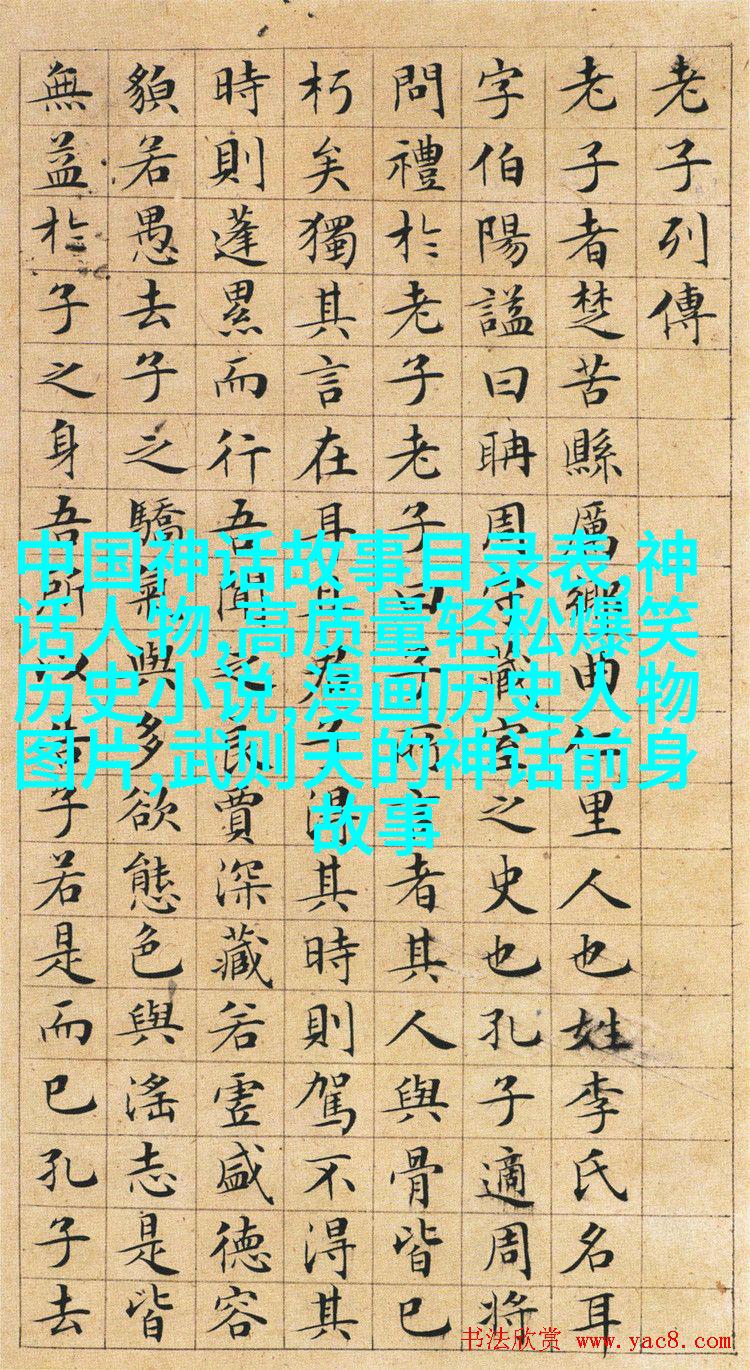 老子列傳
老子者楚苦縣厲鄉曲仁里人也姓李氏名耳
字伯陽謚曰聃周守藏室之史也孔子適周將
問禮於老子老子曰子所言者其人與骨皆已
朽矣獨其言在耳且君子得其時則駕不得其
時則蓬累而行吾聞之良賈深藏若虛盛德容
貌若愚去子之驕氣與多欲態色與淫志是皆
無益於子之身吾所以告子若是而已孔子去
中国神话故事目录表,神
话人物,高质量轻松爆笑
历史小说,漫画历史人物
图片,武则天的神话前身
故事
书法欣赏 www.yac8.com